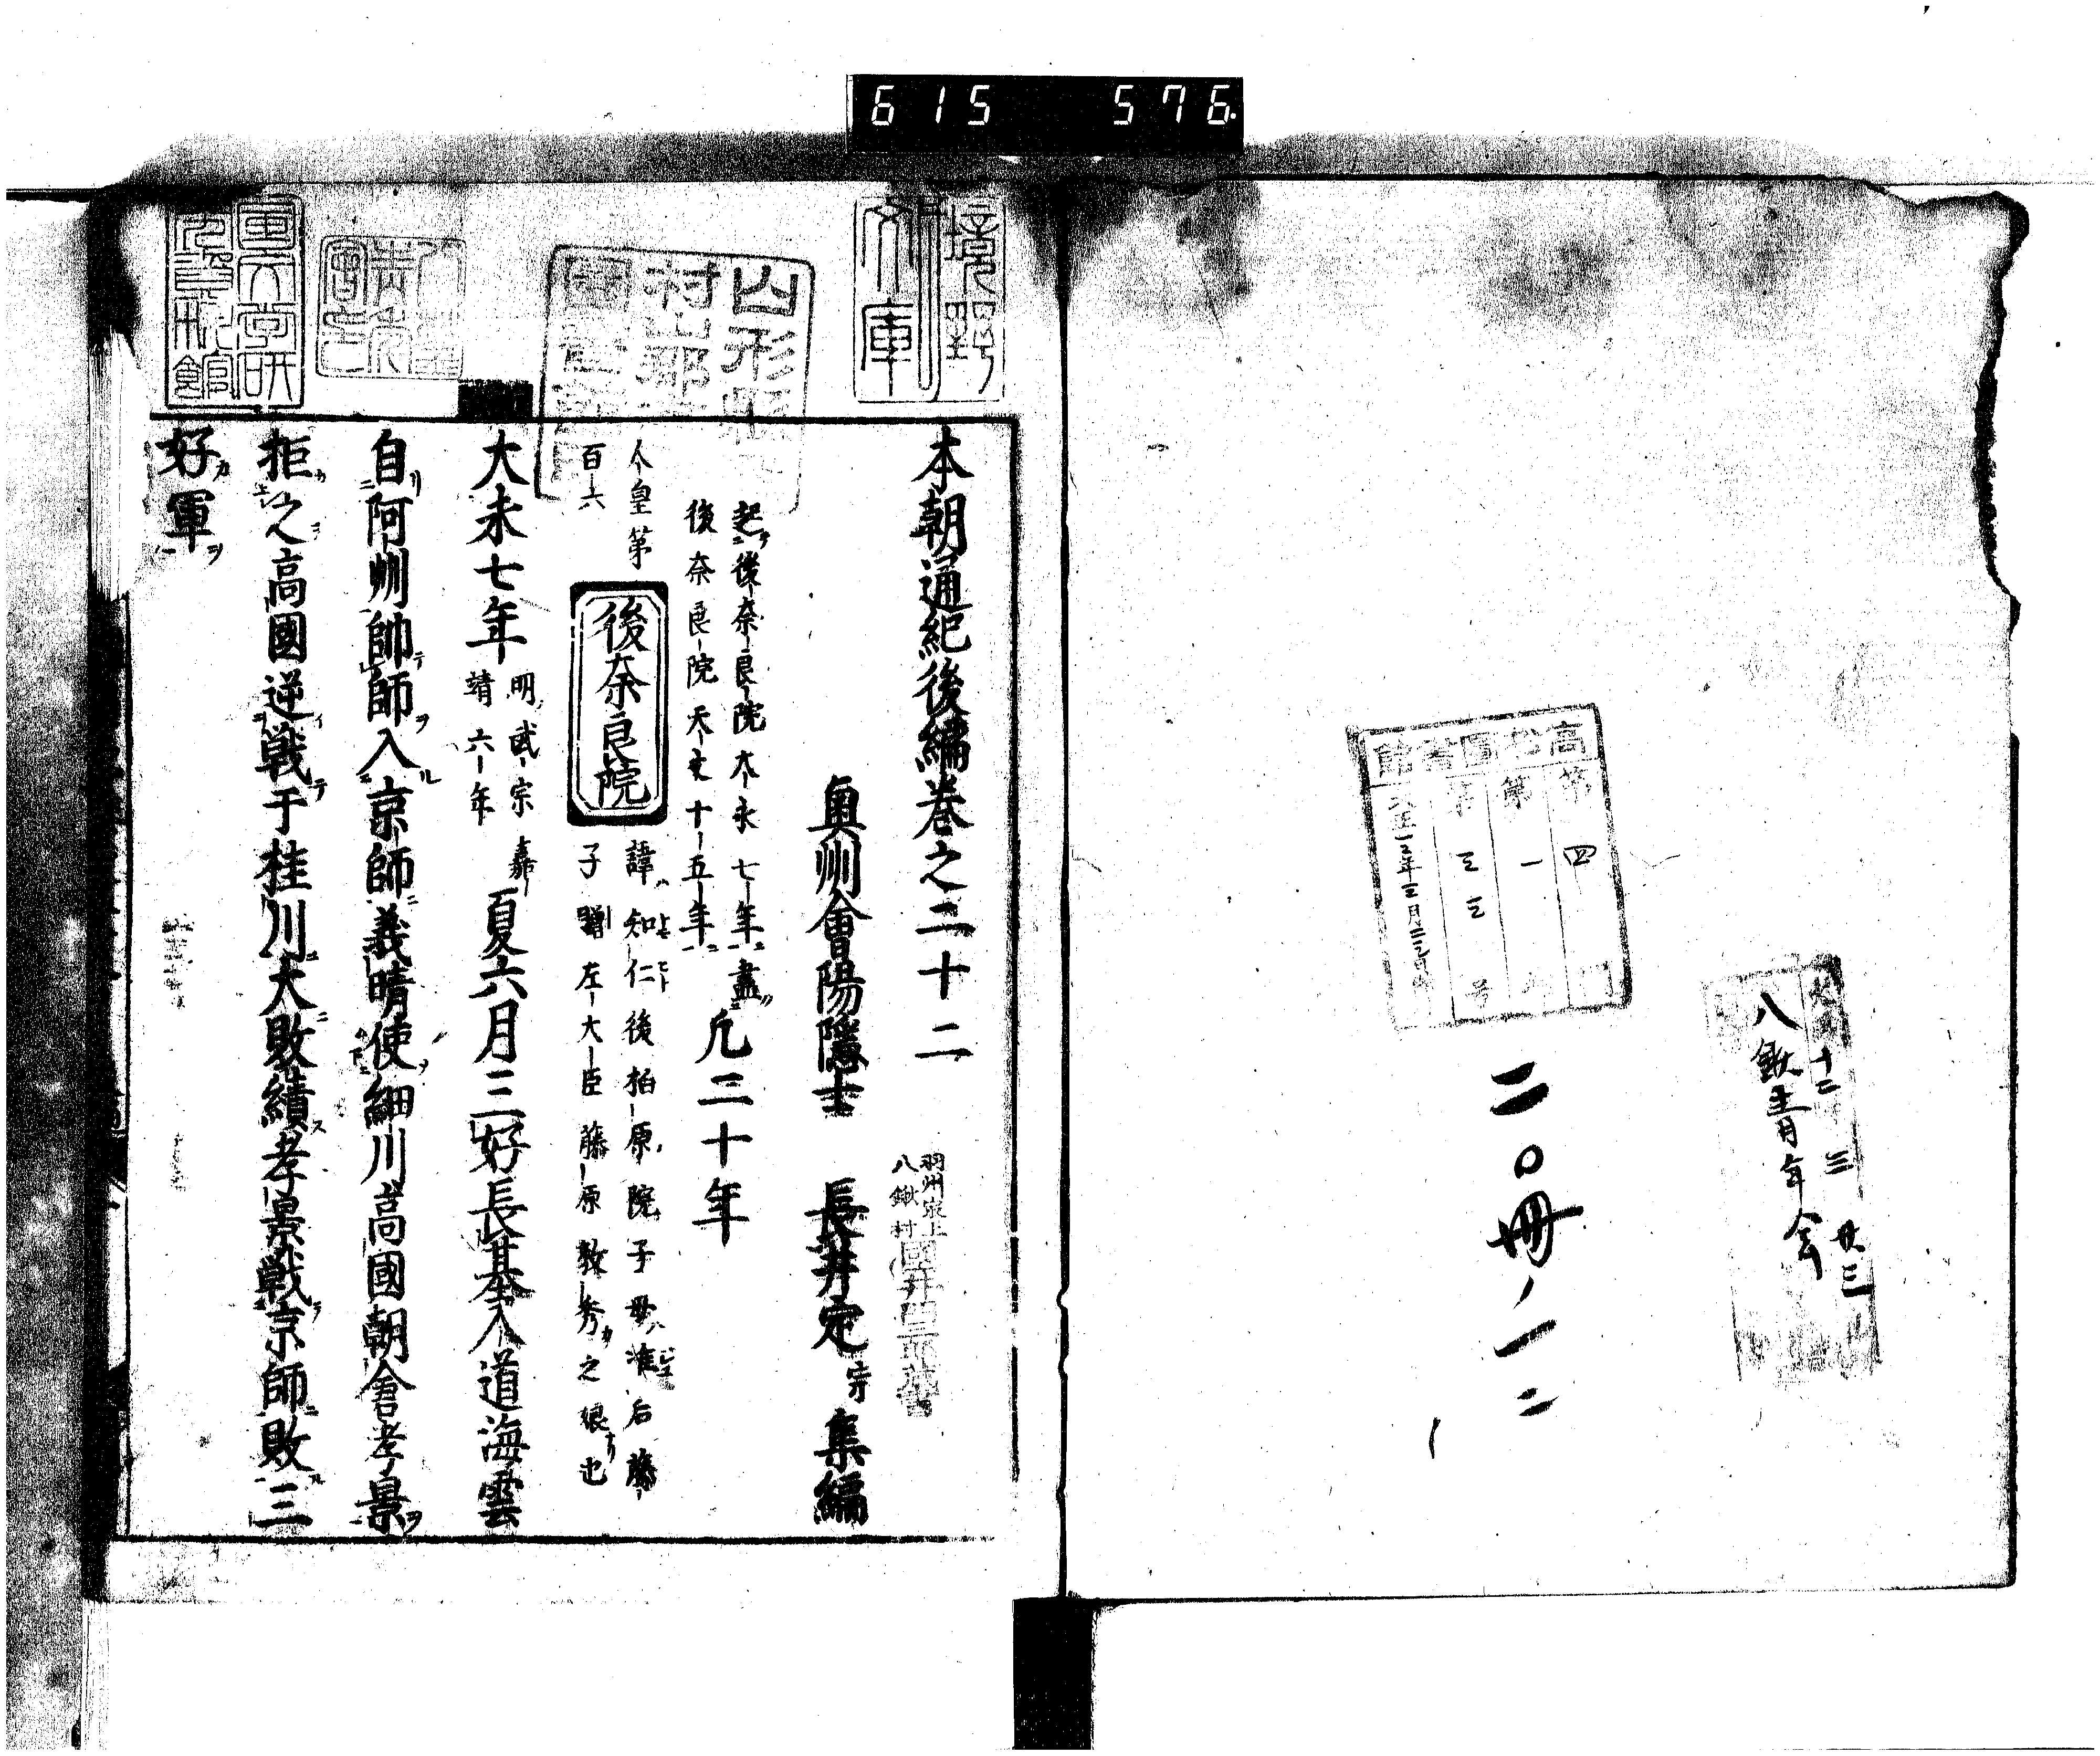 615 576
高松圖書館
第四門
第一
第三三号
十二 三 廿三
八鍬青年会
二〇冊ノ一二
本朝通紀後編巻之二十二
奥州會陽隱士 長井定宗集編
羽州最上
八鍬村
起後奈良院大永七年盡
後奈良院天文十五年
凡二十年
人皇第
百六
後奈良院
諱知仁後柏原院子母准后藤
子贈左大臣藤原教秀之娘也
大永七年
明武宗嘉
靖六年
夏六月三好長基入道海雲
自阿州帥師入京師義晴使細川高國朝倉孝景
拒之高國逆戦于桂川大敗績孝景戦京師敗三
好軍
山形縣
村山郡
文庫